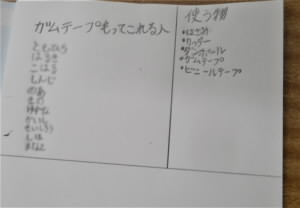 ガムテープもってこれる人
ともひろ
はるき
こはる
もんじ
のあ
その
ゆずな
かいし
せいしろう
しほ
まなと
使う物
•はさみ
•カッター
•ダンボール
•ガムテープ
•ビニールテープ